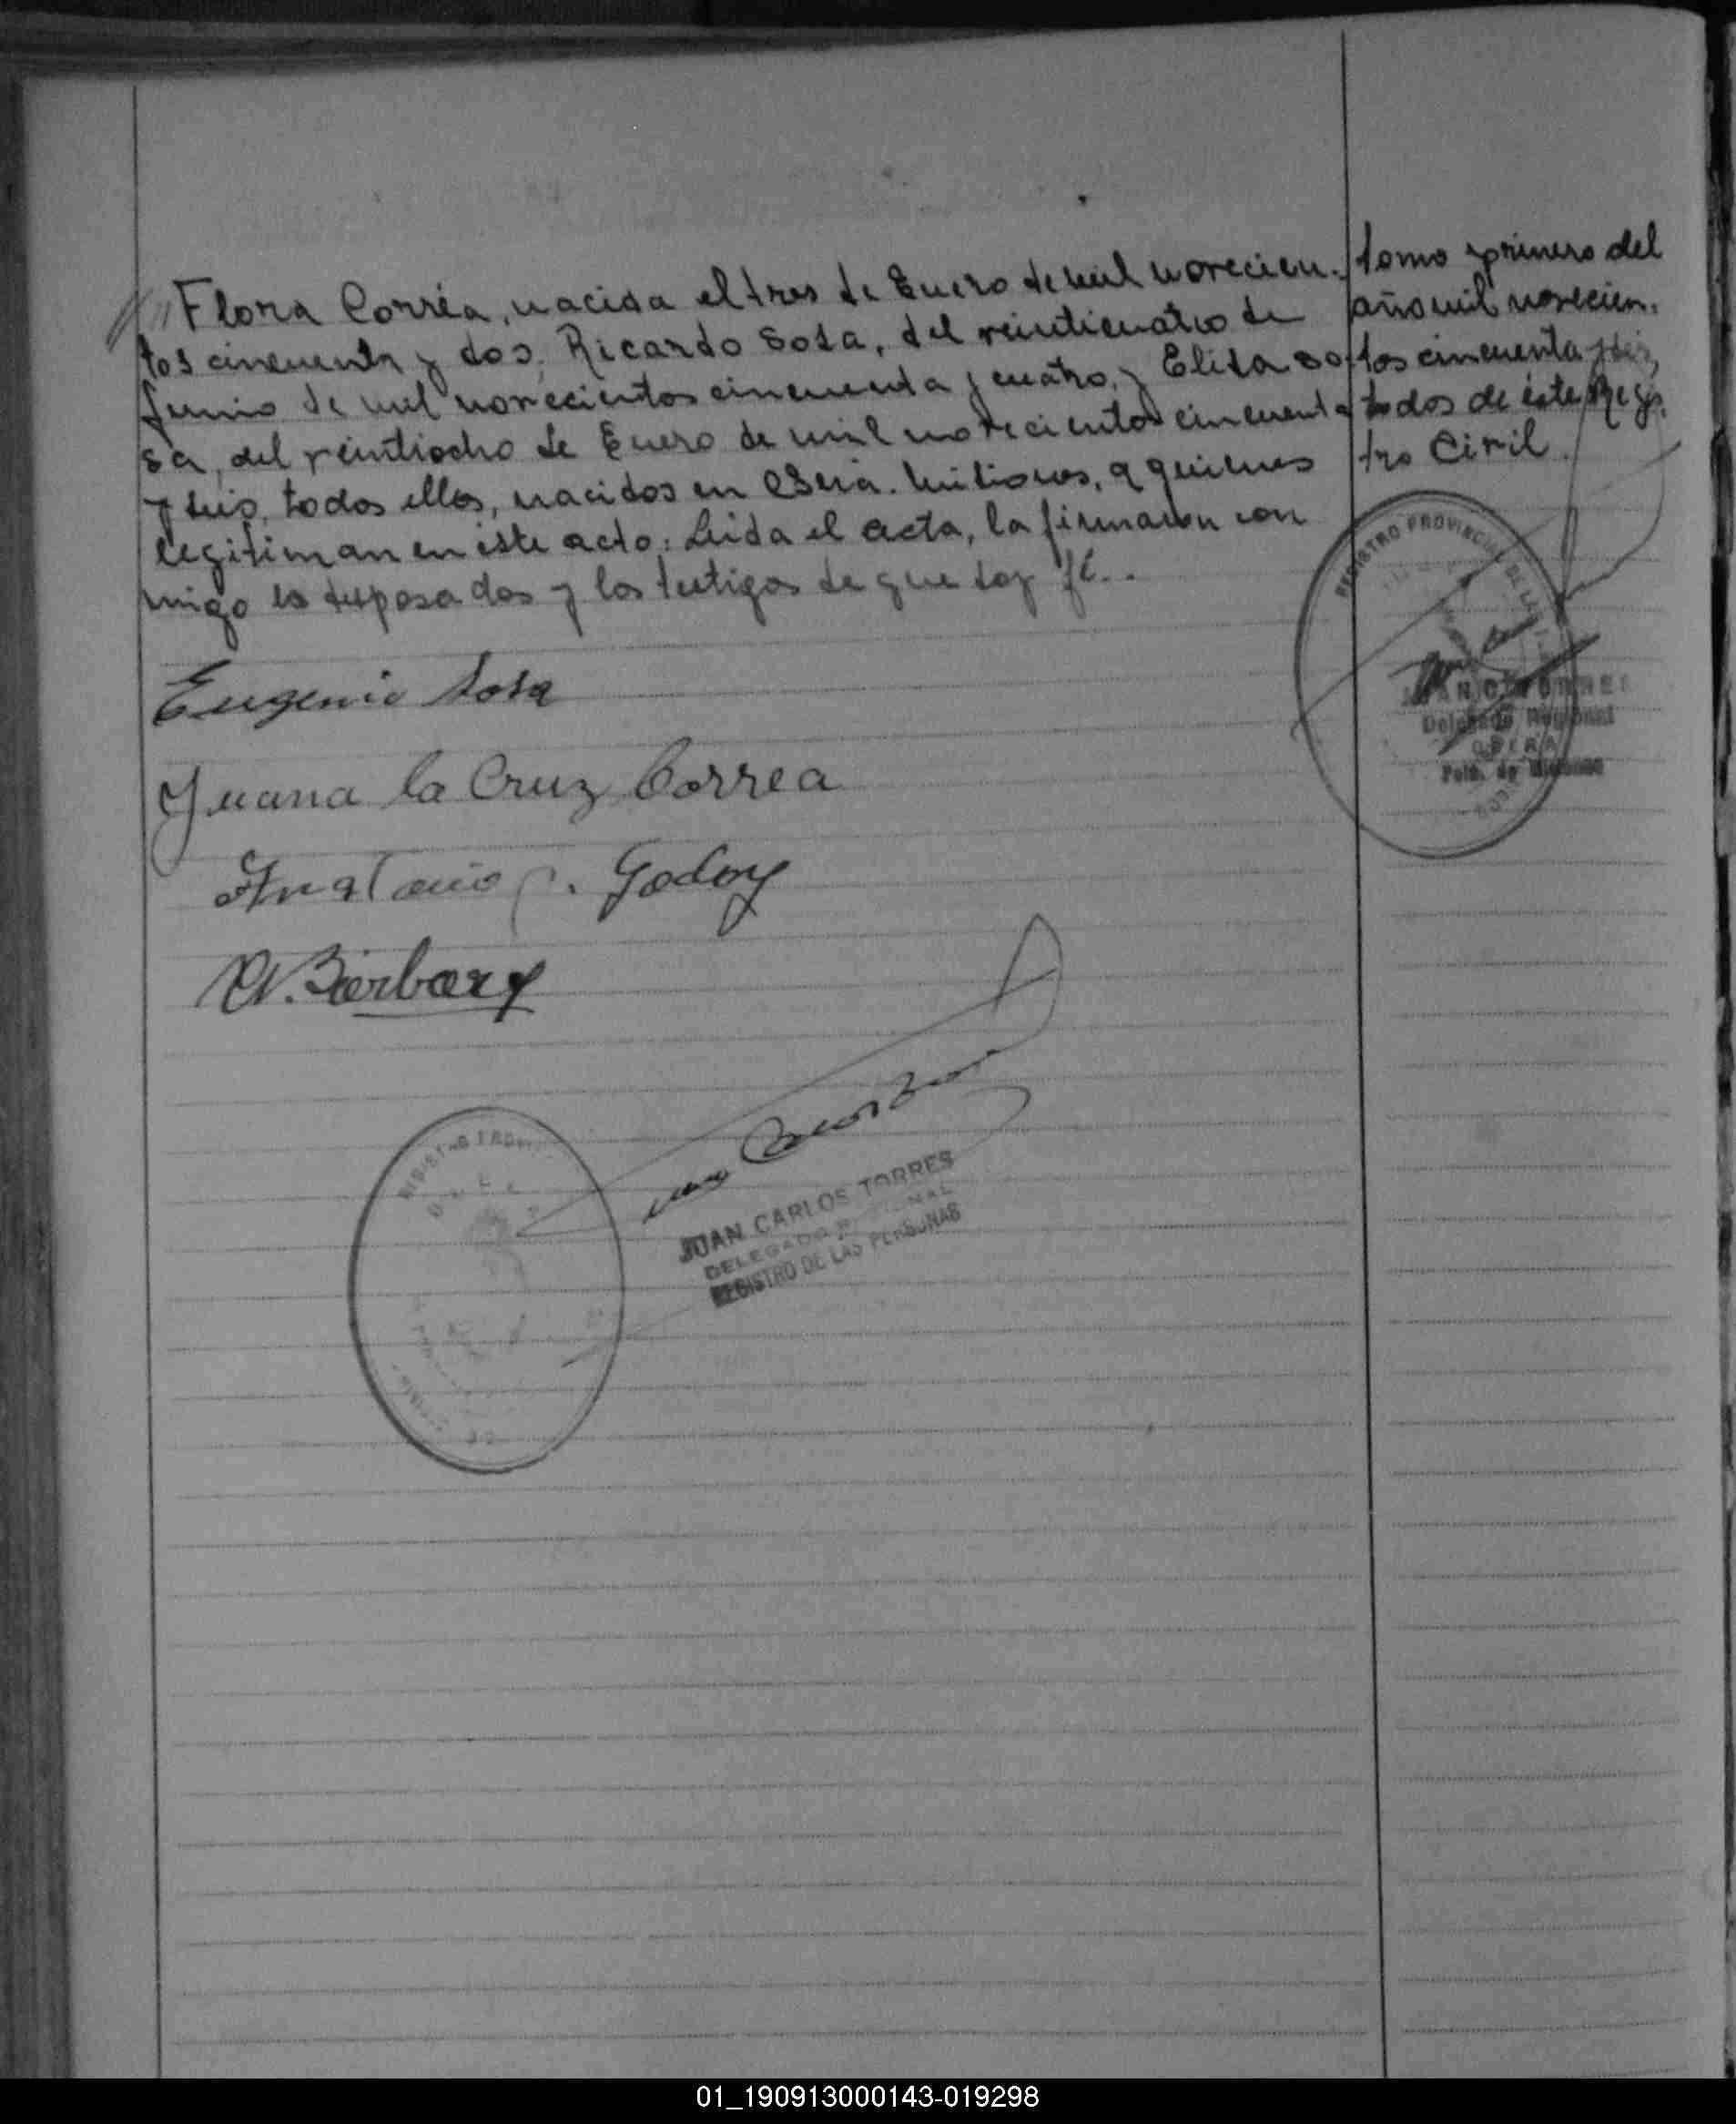 Flora Corrêa, nacida el tres de Enero de mil novecien-
tos cincuenta y dos, Ricardo Sosa, del veinticuatro de
Junio de mil novecientos cincuenta y cuatro, y Elisa So-
sa, del veintiocho de Enero de mil novecientos cincuenta
y seis, todos ellos, nacidos en Oberá. Misiones, a quienes
legitiman en éste acto: Leida el acta, la firmaron con
migo los desposados y los testigos de que doy fé..
tomo primero del
año mil novecien.
tos cincuenta y seis,
todos de éste Regis.
tro Civil.
REGISTRO PROVINCIAL DE LAS
Delegado Regional
OBERA
Eugenio Sosa
Juana la Cruz Correa
Godoy
JUAN CARLOS TORRES
DELEGADO REGIONAL
REGISTRO DE LAS PERSONAS
01_190913000143-019298